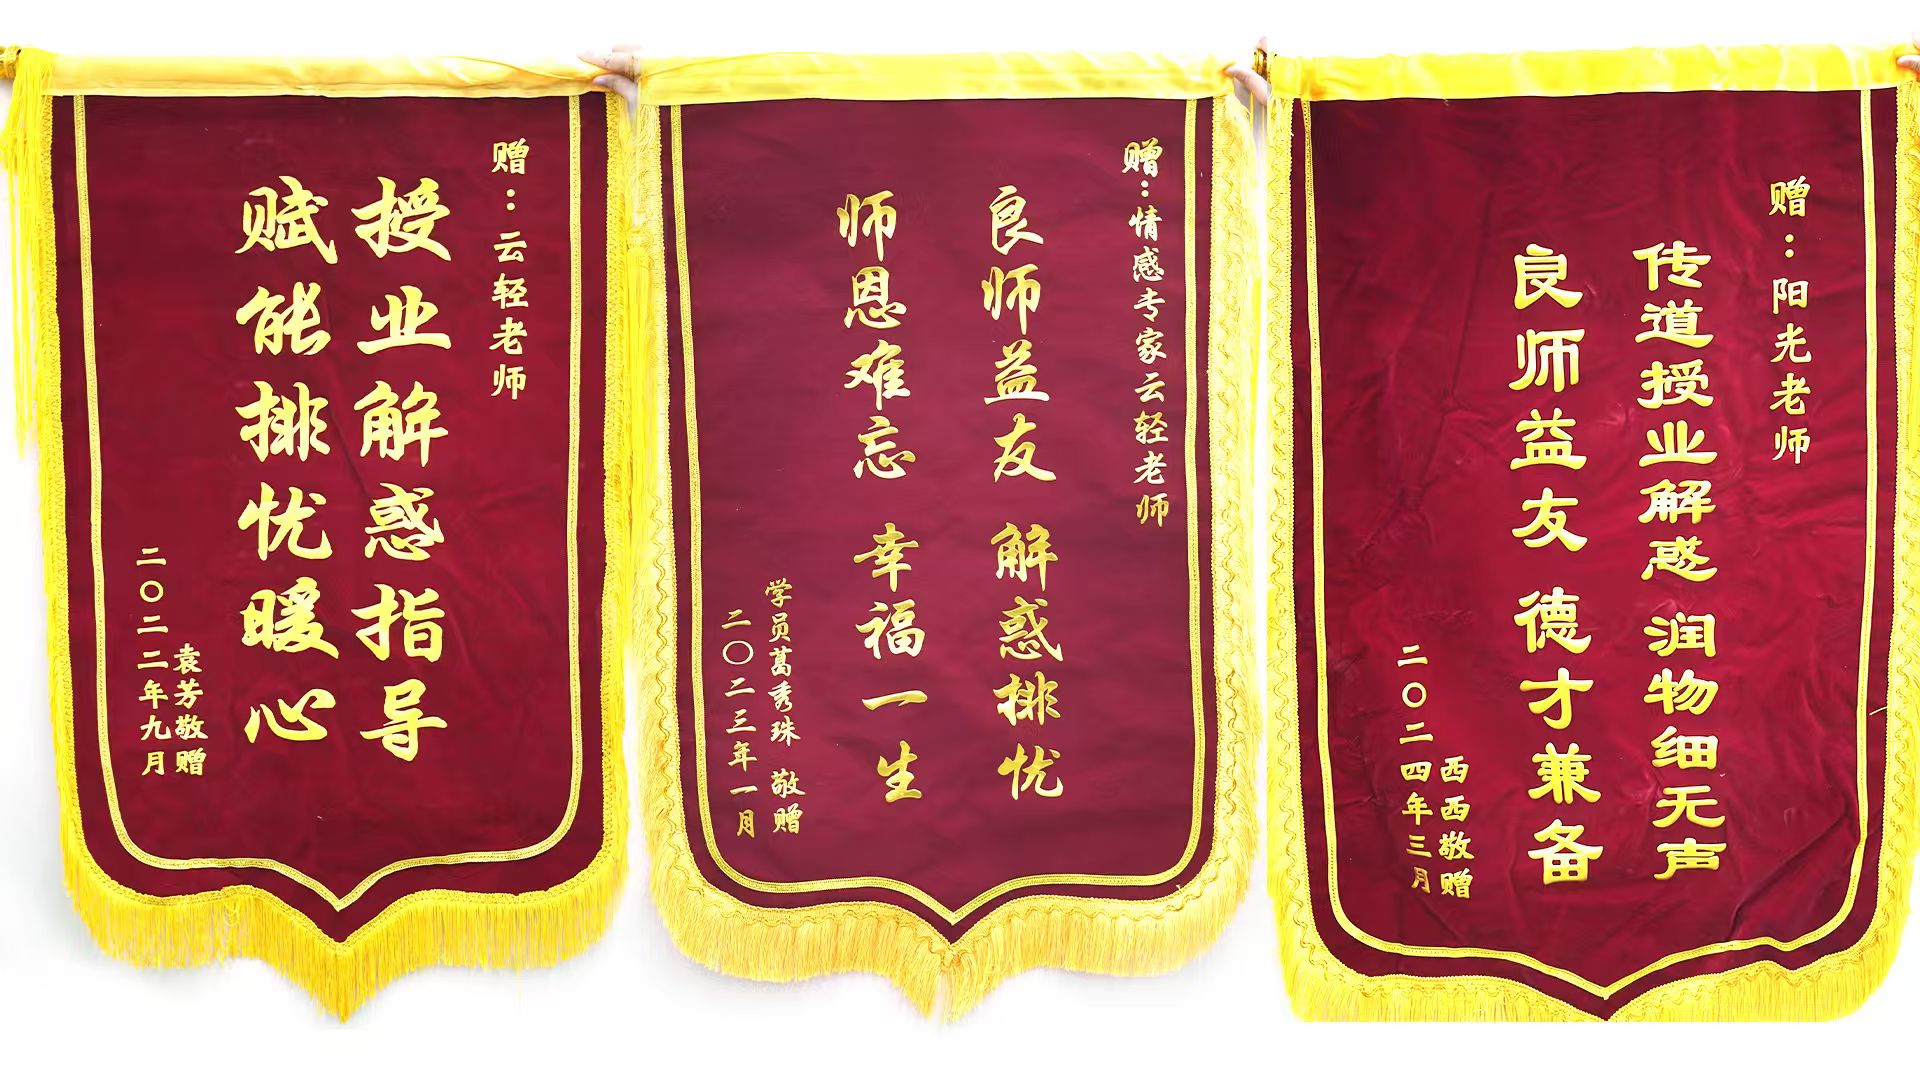 赠：云轻老师
授业解惑指导
赋能排忧暖心
袁芳敬赠
二〇二二年九月
赠：情感专家云轻老师
良师益友 解惑排忧
师恩难忘 幸福一生
学员葛秀珠 敬赠
二〇二三年一月
赠：阳光老师
传道授业解惑 润物细无声
良师益友 德才兼备
西西敬赠
二〇二四年三月